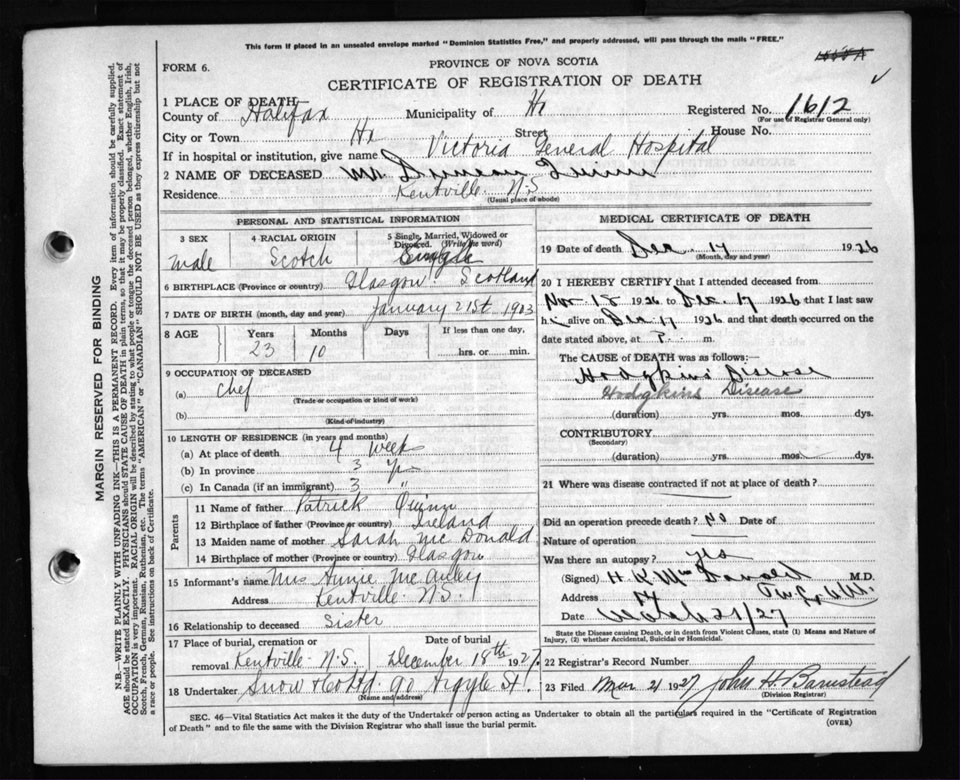 This form if placed in an unsealed envelope marked "Dominion Statistics Free," and properly addressed, will pass through the mails "FREE."
FORM 6.
PROVINCE OF NOVA SCOTIA
CERTIFICATE OF REGISTRATION OF DEATH
1 PLACE OF DEATH
County of Halifax Municipality of Hx Registered No. 1612
(For use of Registrar General only)
City or Town Hx Street House No.
If in hospital or institution, give name Victoria General Hospital
2 NAME OF DECEASED Mr Duncan Quinn
Residence Kentville N.S
(Usual place of abode)
PERSONAL AND STATISTICAL INFORMATION
3 SEX 4 RACIAL ORIGIN 5 Single, Married, Widowed or Divorced. (Write the word)
male Scotch Single
6 BIRTHPLACE (Province or country) Glasgow Scotland
7 DATE OF BIRTH (month, day and year) January 21st 1903
8 AGE Years Months Days If less than one day,
23 10 hrs. or min.
9 OCCUPATION OF DECEASED
(a) Chef
(Trade or occupation or kind of work)
(b)
(Kind of industry)
10 LENGTH OF RESIDENCE (in years and months)
(a) At place of death 4 Week
(b) In province 3 yrs
(c) In Canada (if an immigrant) 3 "
Parents
11 Name of father Patrick Quinn
12 Birthplace of father (Province or country) Ireland
13 Maiden name of mother Sarah McDonald
14 Birthplace of mother (Province or country) Glasgow
15 Informant's name Mrs Annie McAuley
Address Kentville N.S.
16 Relationship to deceased Sister
17 Place of burial, cremation or Date of burial
removal Kentville N.S. December 18th 1927
18 Undertaker Snow & Co Ltd. 90 Argyle St.
(Name and address)
MEDICAL CERTIFICATE OF DEATH
19 Date of death Dec. 17 1926
(Month, day and year)
20 I HEREBY CERTIFY that I attended deceased from
Nov. 18 1926 to Dec. 17 1926 that I last saw
h alive on Dec. 17 1926 and that death occurred on the
date stated above, at P. m.
The CAUSE of DEATH was as follows:
Hodgkins Disease
Hodgkins Disease
(duration) yrs. mos. dys.
CONTRIBUTORY
(Secondary)
(duration) yrs. mos. dys.
21 Where was disease contracted if not at place of death?
Did an operation precede death? No Date of
Nature of operation
Was there an autopsy? yes
(Signed) M.D.
Address
Date March 21/27
State the Disease causing Death, or in death from Violent Causes, state (1) Means and Nature of Injury, (2) whether Accidental, Suicidal or Homicidal.
22 Registrar's Record Number
23 Filed Mar 21 1927 John H. Barnstead
(Division Registrar)
SEC. 46—Vital Statistics Act makes it the duty of the Undertaker or person acting as Undertaker to obtain all the particulars required in the "Certificate of Registration
of Death" and to file the same with the Division Registrar who shall issue the burial permit. (OVER)
MARGIN RESERVED FOR BINDING
N.B.—WRITE PLAINLY WITH UNFADING INK—THIS IS A PERMANENT RECORD. Every item of information should be carefully supplied.
AGE should be stated EXACTLY. PHYSICIANS should STATE CAUSE OF DEATH in plain terms, so that it may be properly classified. Exact statement of
OCCUPATION is very important. RACIAL ORIGIN will be described by stating to what people or tongue the deceased person belonged, whether English, Irish,
Scotch, French, German, Russian, Ruthenian, etc. The terms "AMERICAN" or "CANADIAN" SHOULD NOT BE USED as they express citizenship but not
a race or people. See instructions on back of Certificate.